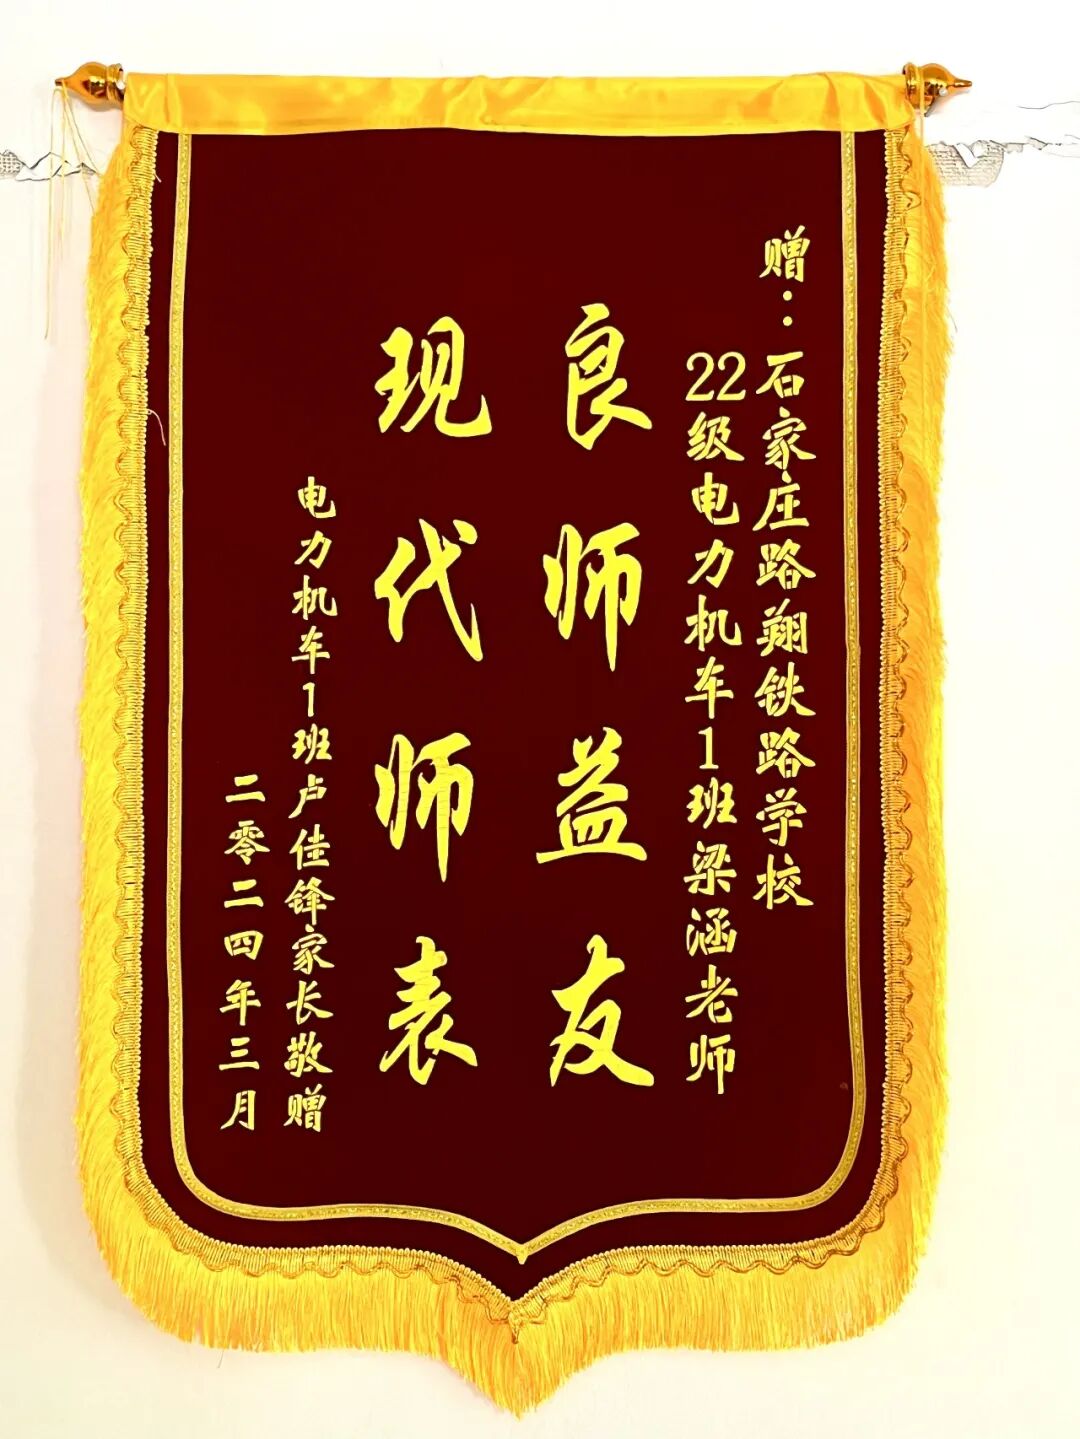 赠：石家庄路翔铁路学校
22级电力机车1班梁涵老师
良师益友
现代师表
电力机车1班卢佳锋家长敬赠
二零二四年三月